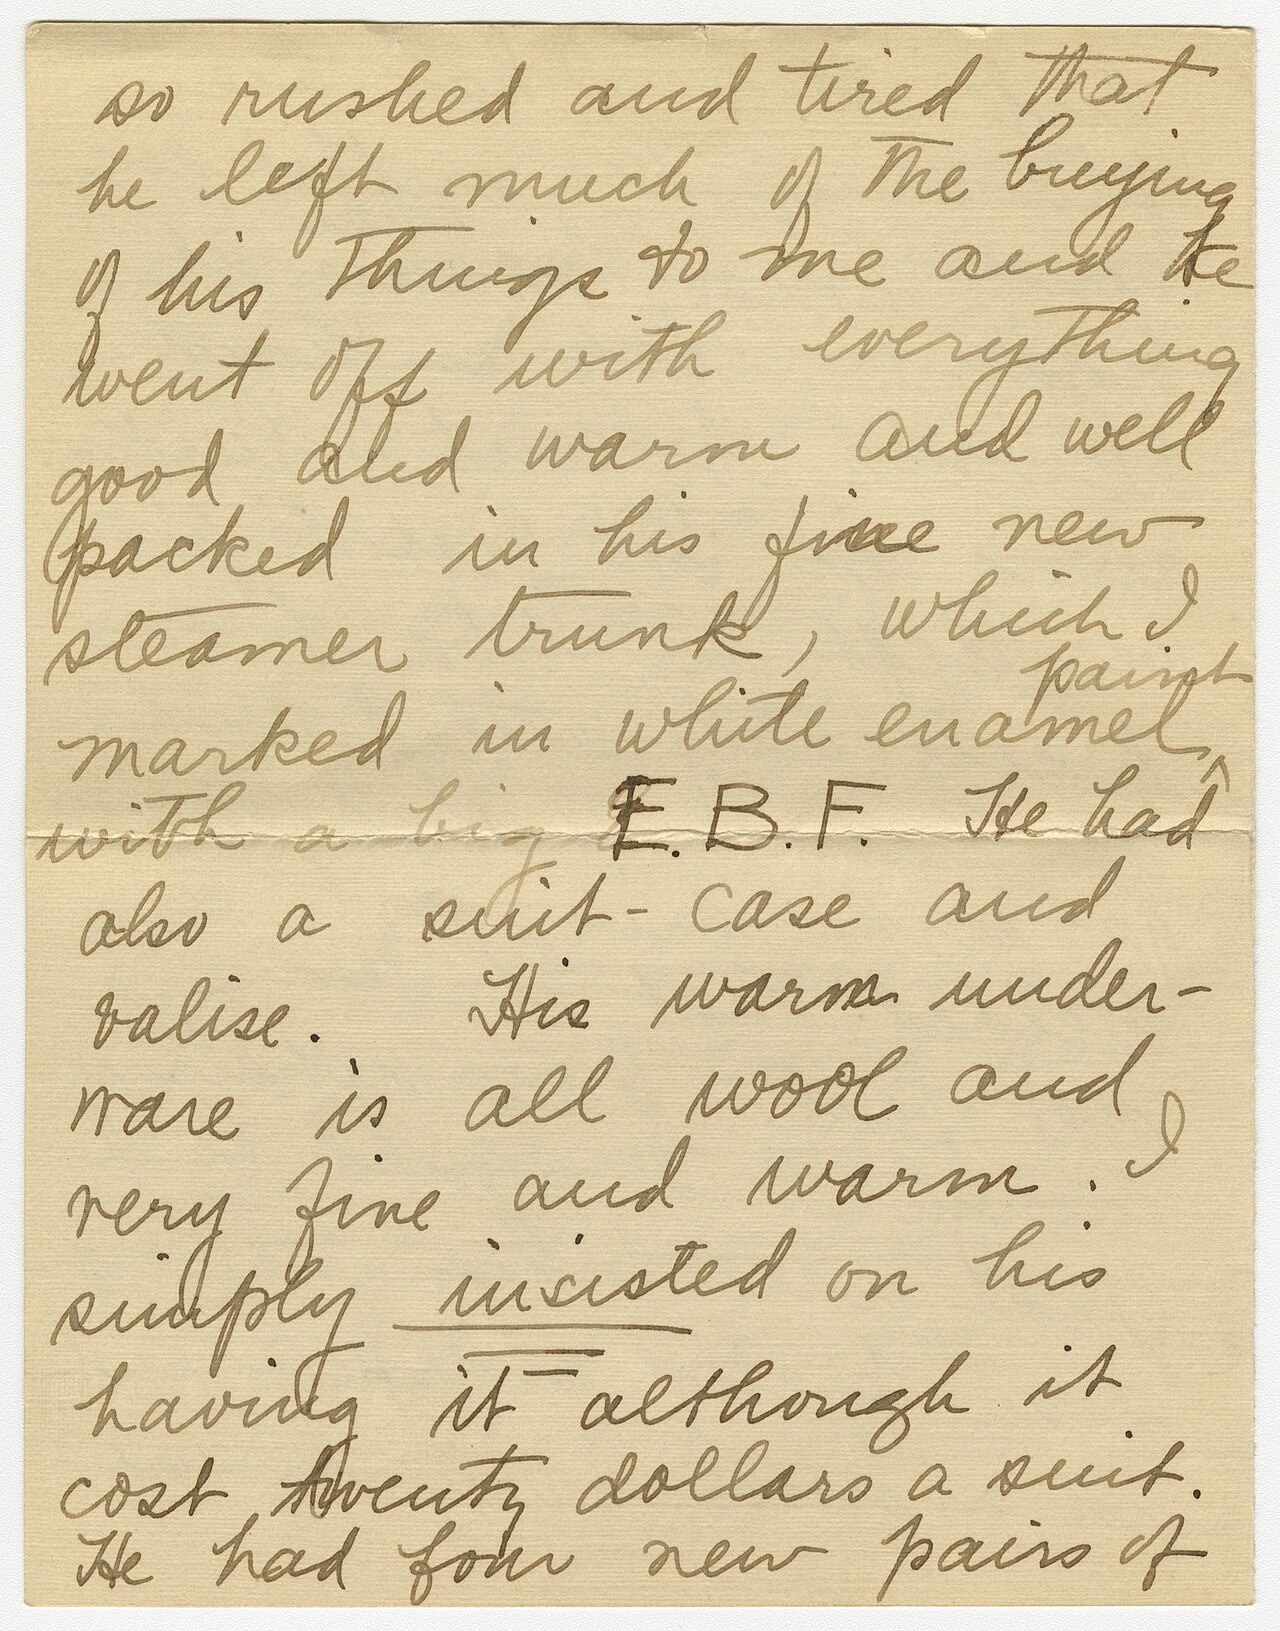 so rushed and tired that
he left much of the buying
of his things to me and he
went off with everything
good and warm and well
packed in his fine new
steamer trunk, which I
marked in white enamel paint
with a big E.B.F. He had
also a suit-case and
valise. His warm under-
ware is all wool and
very fine and warm. I
simply insisted on his
having it although it
cost twenty dollars a suit.
He had four new pairs of